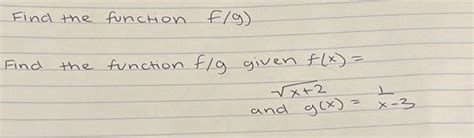 Find the function f/g)
Find the function f/g given f(x) =
√x+2
and g(x) = 1/x-3